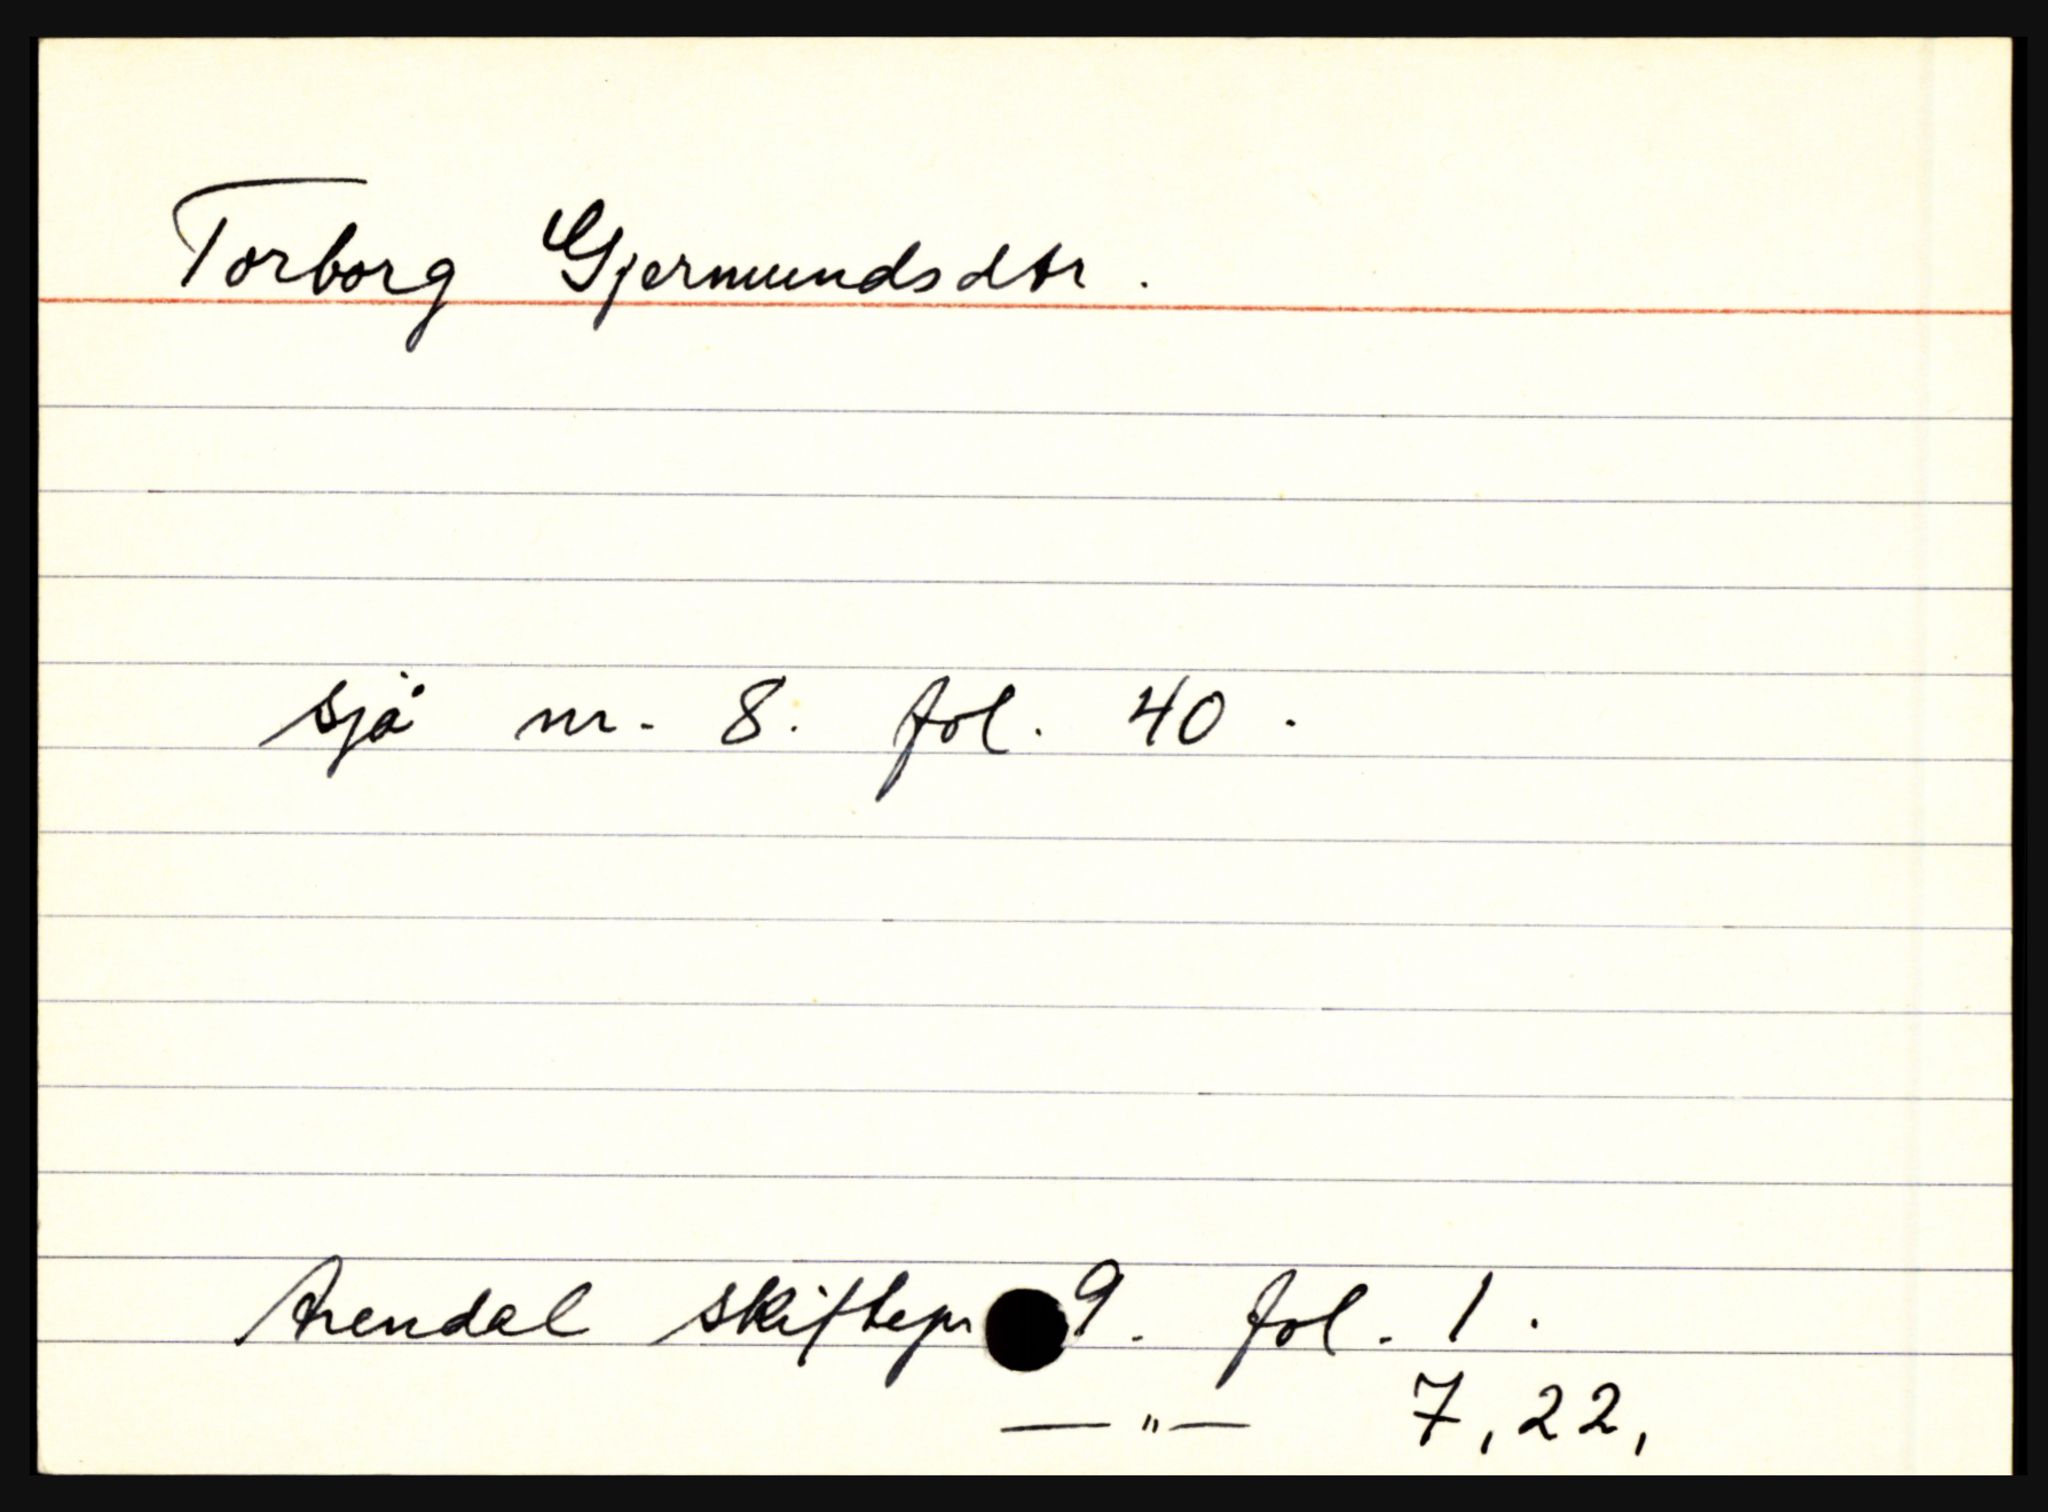 Torborg Gjermundsdtr.
sjå nr. 8. fol. 40.
Arendal skiftepr 9. fol. 1.
— " — 7, 22,